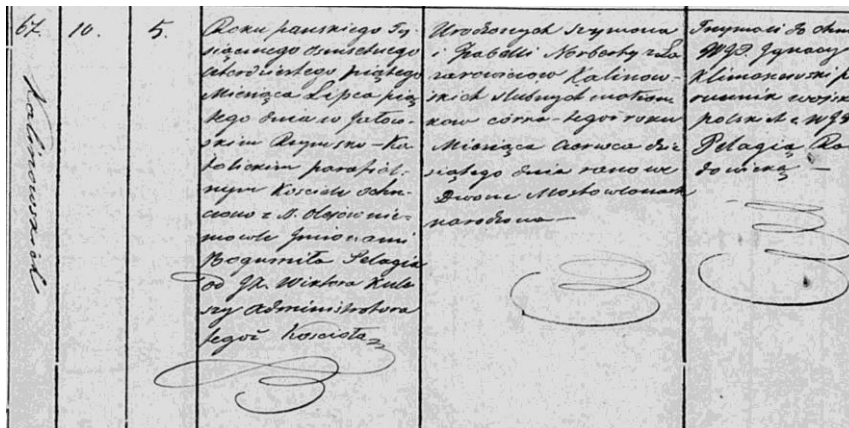 67.
Kalinowskich
10.
5.
Roku pańskiego Ty-
siącznego ośmsetnego
czterdziestego piątego
Miesiąca Lipca pią-
tego dnia w
Rzymsko-Ka-
tolickim parafial-
nym Kościele ochrz-
czono z S. Olejów nie-
mowle Imionami
Bogumiła Pelagia
od JX. Wiktora Kule-
szy Administratora
tegoż Kościoła
Urodzonych Szymona
i Izabelli Norberty z Ła-
zarowiczow Kalinow-
skich ślubnych małżon-
kow córna tegoż roku
Miesiąca Czerwca dzie-
siątego dnia rano we
Dworze
narodzona
Trzymali do chrz
WJP Ignacy
Klimaszewski p
rucznik wojsk
polskich z WJP
Pelagią Ra-
dowicką